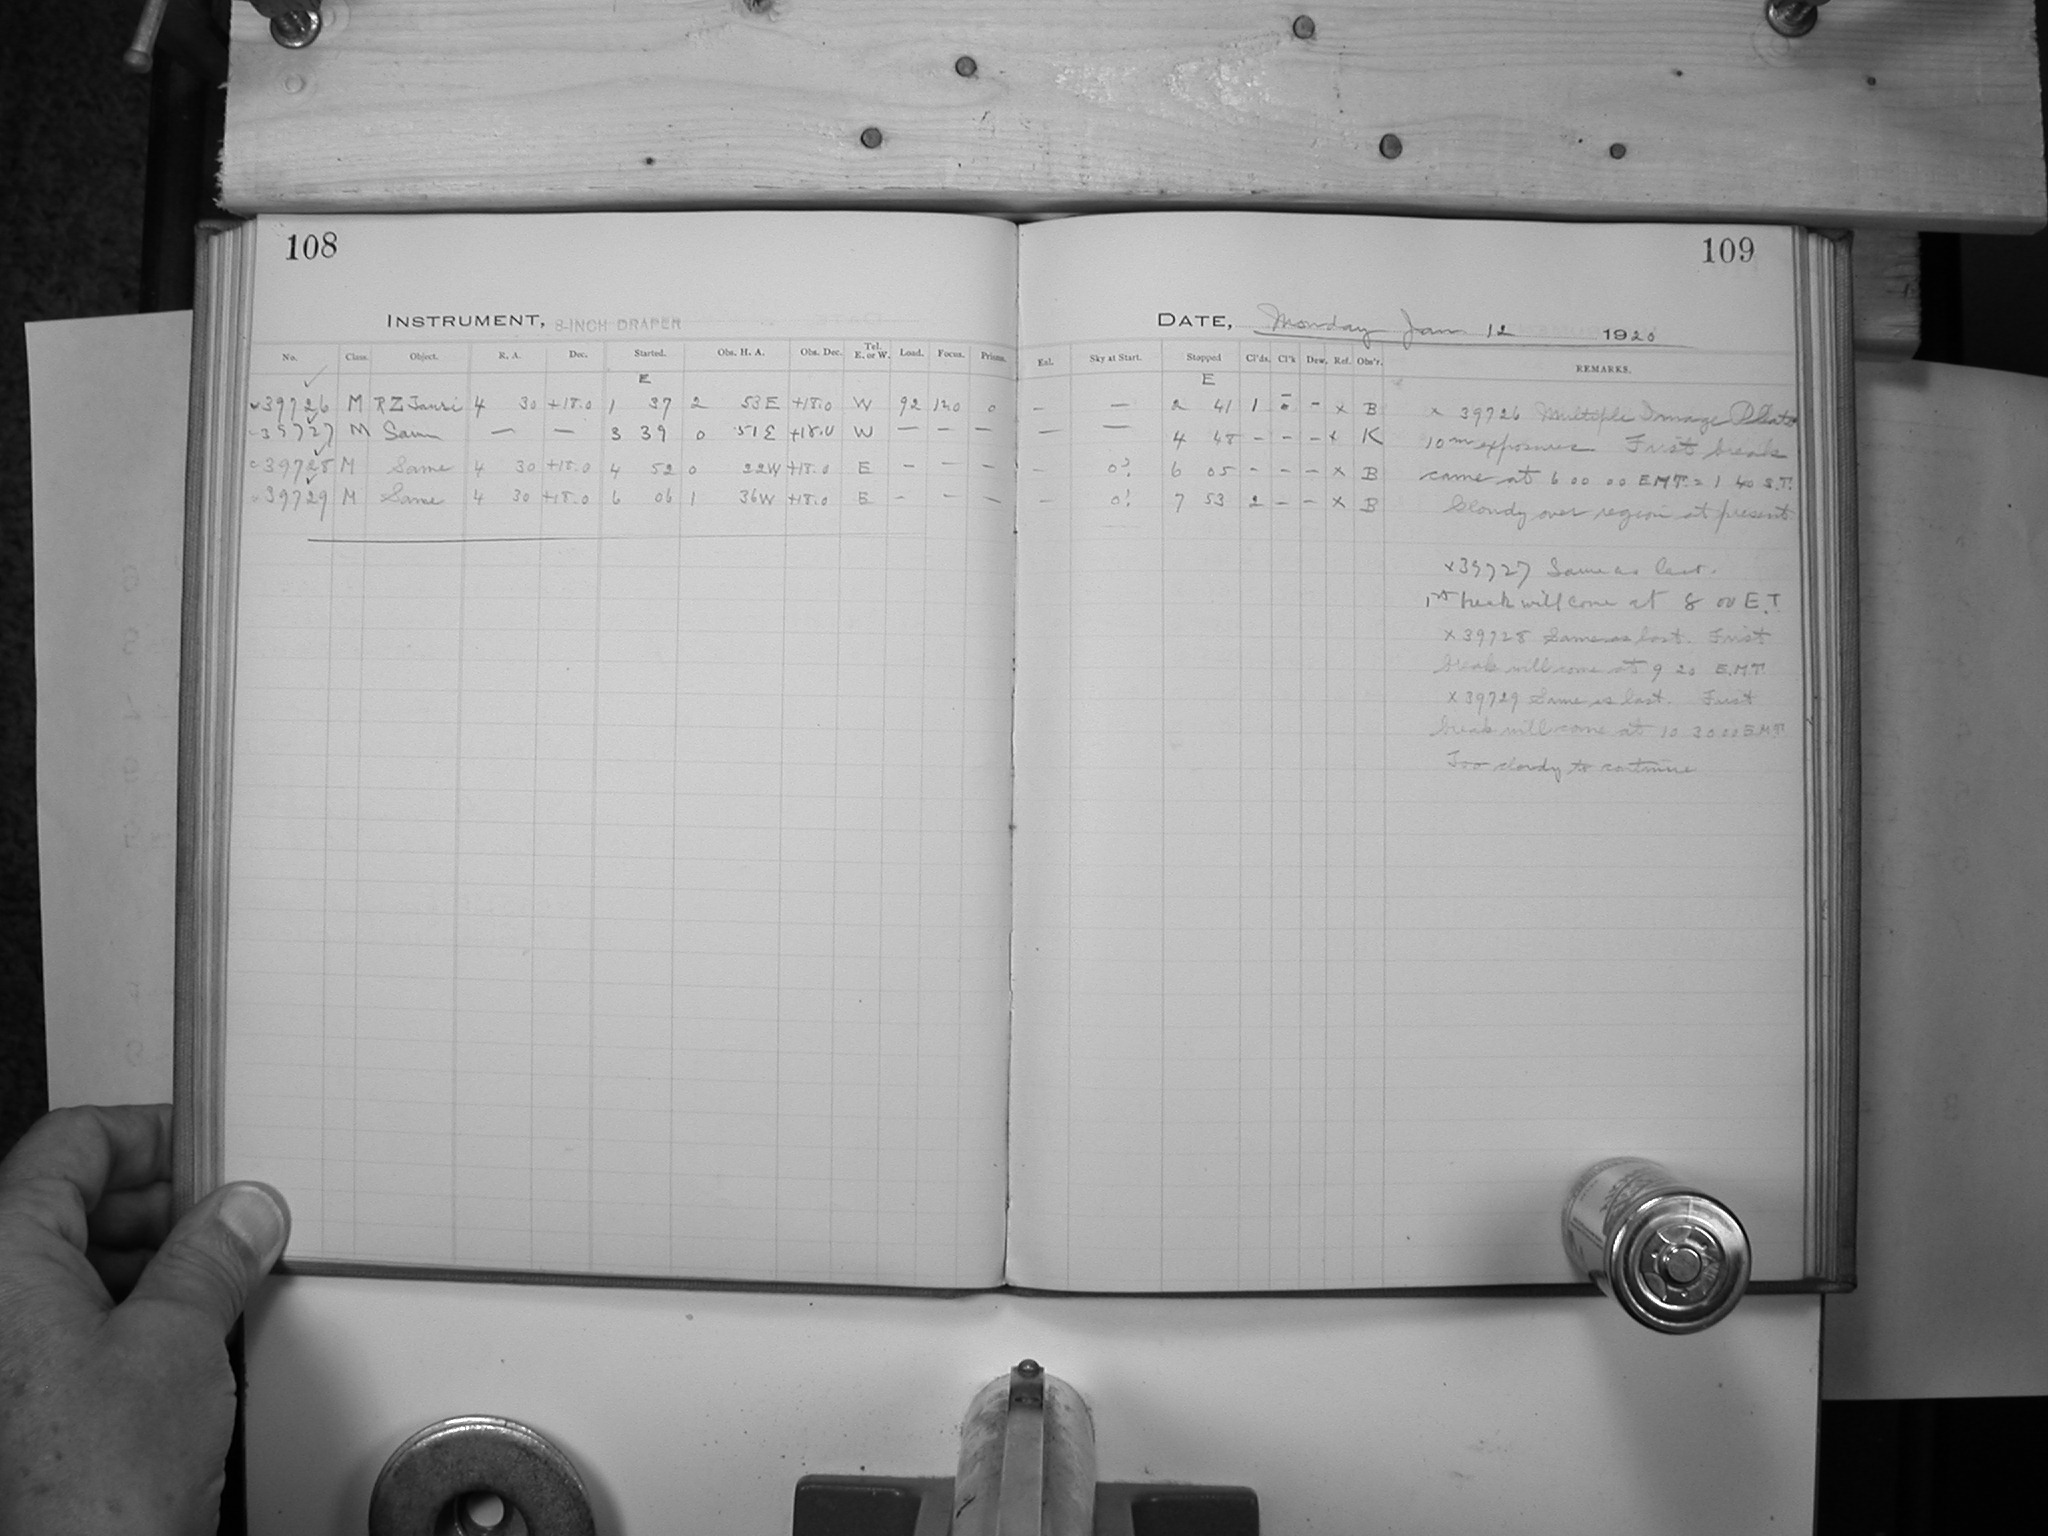 108
INSTRUMENT, 8-INCH DRAPER
No. Class. Object. R. A. Dec. Started. Obs. H. A. Obs. Dec. Tel. E. or W. Load. Focus. Prisms.
E
39726 M RZ Tauri 4 30 +18.0 1 37 2 53E +18.0 W 92 120 0
39727 M Same — — 3 39 0 51E +18.0 W — — —
39728 M Same 4 30 +18.0 4 52 0 22W +18.0 E – – –
39729 M Same 4 30 +18.0 6 06 1 36W +18.0 E – – –
109
DATE, Monday Jan 12 1920
Exl. Sky at Start. Stopped Cl'ds. Cl'k Dew. Ref. Obs'r. REMARKS.
E
– — 2 41 1 – x B
— — 4 48 – – – x K
– 0? 6 05 – – – x B
– 0? 7 53 2 – – x B
x 39726 Multiple Image Plate
10m exposures First break
came at 6 00 00 EMT = 1 40 S.T.
Cloudy over region at present
x39727 Same as last.
1st break will come at 8 00 E.T.
x 39728 Same as last. First
break will come at 9 20 E.M.T.
x 39729 Same as last. First
break will come at 10 30 00 E.M.T.
Too cloudy to continue